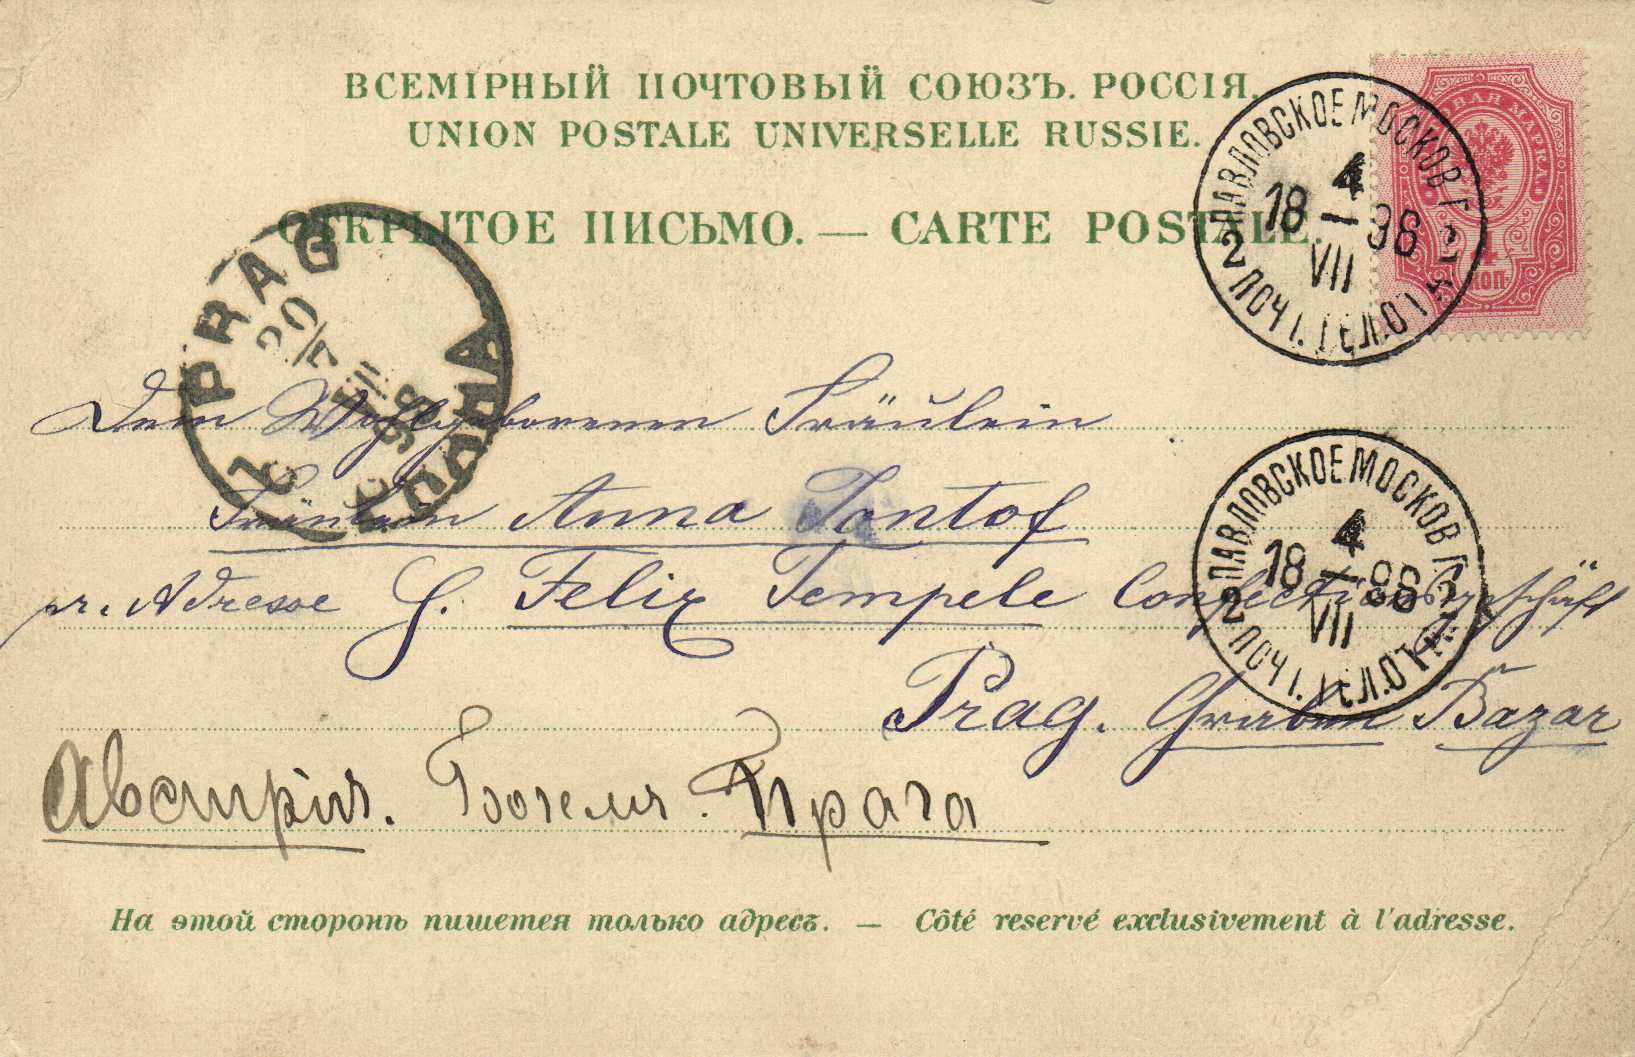 ВСЕМІРНЫЙ ПОЧТОВЫЙ СОЮЗЪ. РОССІЯ.
UNION POSTALE UNIVERSELLE RUSSIE.
ОТКРЫТОЕ ПИСЬМО. — CARTE POSTALE.
ПАВЛОВСКОЕ МОСКОВ. Г.
4
18 — 98
VII
2 ПОЧТ. ТЕЛ. ОТ. 2
4 КОП.
PRAG
PRAHA
20/7
98
Dem Wohlgeborenen Fräulein
Fräulein Anna Tontof
pr. Adresse H. Felix Tempele Confectionsgeschäft
Prag. Graben Bazar
ПАВЛОВСКОЕ МОСКОВ. Г.
4
18 — 98
VII
2 ПОЧТ. ТЕЛ. ОТ. 2
Австрія. Богемія. Прага
На этой сторонѣ пишется только адресъ. — Côté reservé exclusivement à l'adresse.